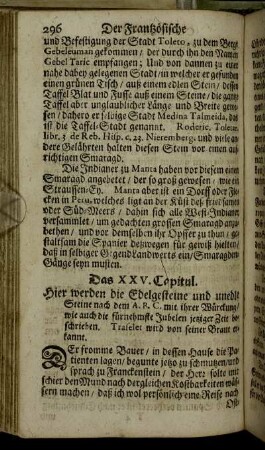 296 Der Frantzösische
und Befestigung der Stadt Toleco, zu dem Berge
Gebelculman gekommen / der durch ihn den Namen
Gebel Taric empfangen; Und von dannen zu einer
nahe dabey gelegenen Stadt / in welcher er gefunden
einen grünen Tisch / auß einem edlen Stein / dessen
Taffel Blat und Fusse auß einem Steine / die gantze
Taffel aber unglaublicher Länge und Breite gewe-
sen / dahero er selbige Stadt Medina Talmeida, das
ist die Taffel-Stadt genannt. Roderic. Toletan.
libr. 3 de Reb. Hisp. c. 23. Nieremberg. und viele an-
dere Gelährten halten diesen Stein vor einen auf-
richtigen Smaragd.
Die Indianer zu Manta haben vor diesem einen
Smaragd angebetet / der so groß gewesen / wie ein
Straussen-Ey. Manta aber ist ein Dorff oder Fle-
cken in Peru, welches ligt an der Küst deß friedsamen
oder Süd-Meers / dahin sich alle West-Indianer
versammlet / um gedachten grossen Smaragd anzu-
bethen / und vor demselben ihr Opffer zu thun / ge-
staltsam die Spanier deßwegen für gewiß hielten /
daß in selbiger Gegend Landwerts ein Smaragden-
Gänge seyn müsten.
Das XXV. Capitul.
Hier werden die Edelgesteine und unedle
Steine nach dem A. B. C. mit ihrer Würckung /
wie auch die fürnehmste Jubilen jetziger Zeit be-
schrieben. Traseler wird von seiner Braut er-
kannt.
DEr fromme Bauer / in dessen Hause die Pa-
tienten lagen / begunte jetzo zu schmutzen / und
sprach zu Franckenstein / der Herr solte mir
schier den Mund nach dergleichen Kostbarkeiten wäs-
sern machen / daß ich wol persönlich eine Reise nach
Ost-